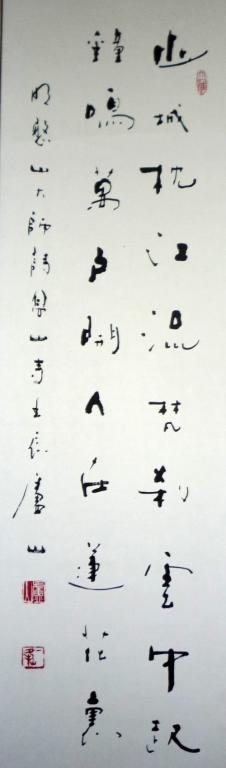 山城枕江梵刹雲中起
鐘鳴萬戶開人在蓮花裏
明憨山大師詩山寺主廬山